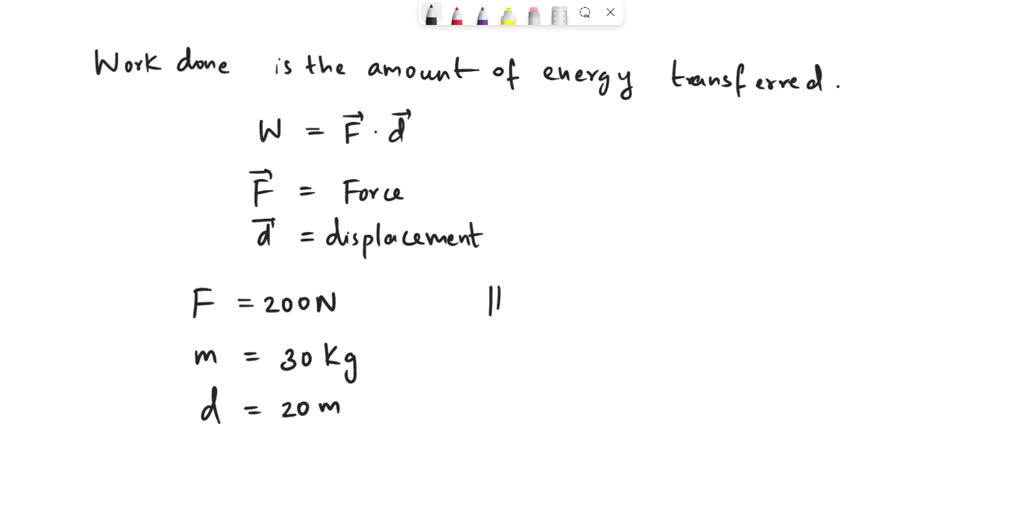 Work done is the amount of energy transferred.
W = F⃗ · d⃗
F⃗ = Force
d⃗ = displacement
F = 200N ||
m = 30 kg
d = 20 m